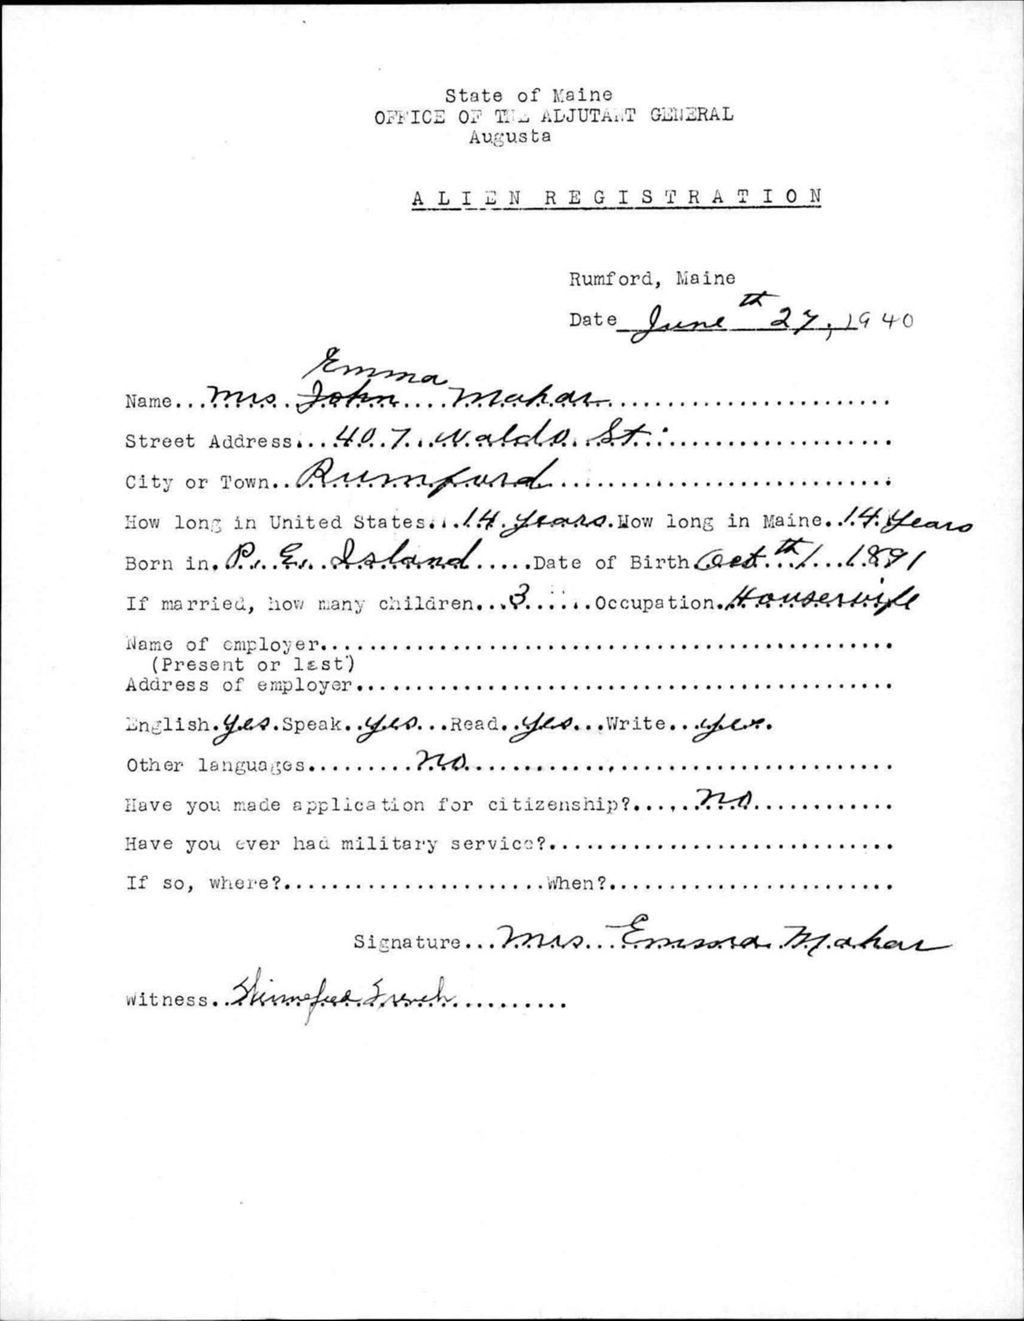 State of Maine
OFFICE OF THE ADJUTANT GENERAL
Augusta
ALIEN REGISTRATION
Rumford, Maine
Date June 27th, 1940
Emma
Name...Mrs. John Mahar
Street Address...407 Waldo St.
City or Town..Rumford
How long in United States...14 years.How long in Maine..14 years
Born in.P. E. Island.....Date of Birth Oct th 1 1891
If married, how many children...3......Occupation.Housewife
Name of employer
(Present or last)
Address of employer
English.yes.Speak..yes...Read..yes...Write...yes.
Other languages.........no
Have you made application for citizenship?......no
Have you ever had military service?
If so, where?......................When?
Signature...Mrs. Emma Mahar
Witness..Winnefred French